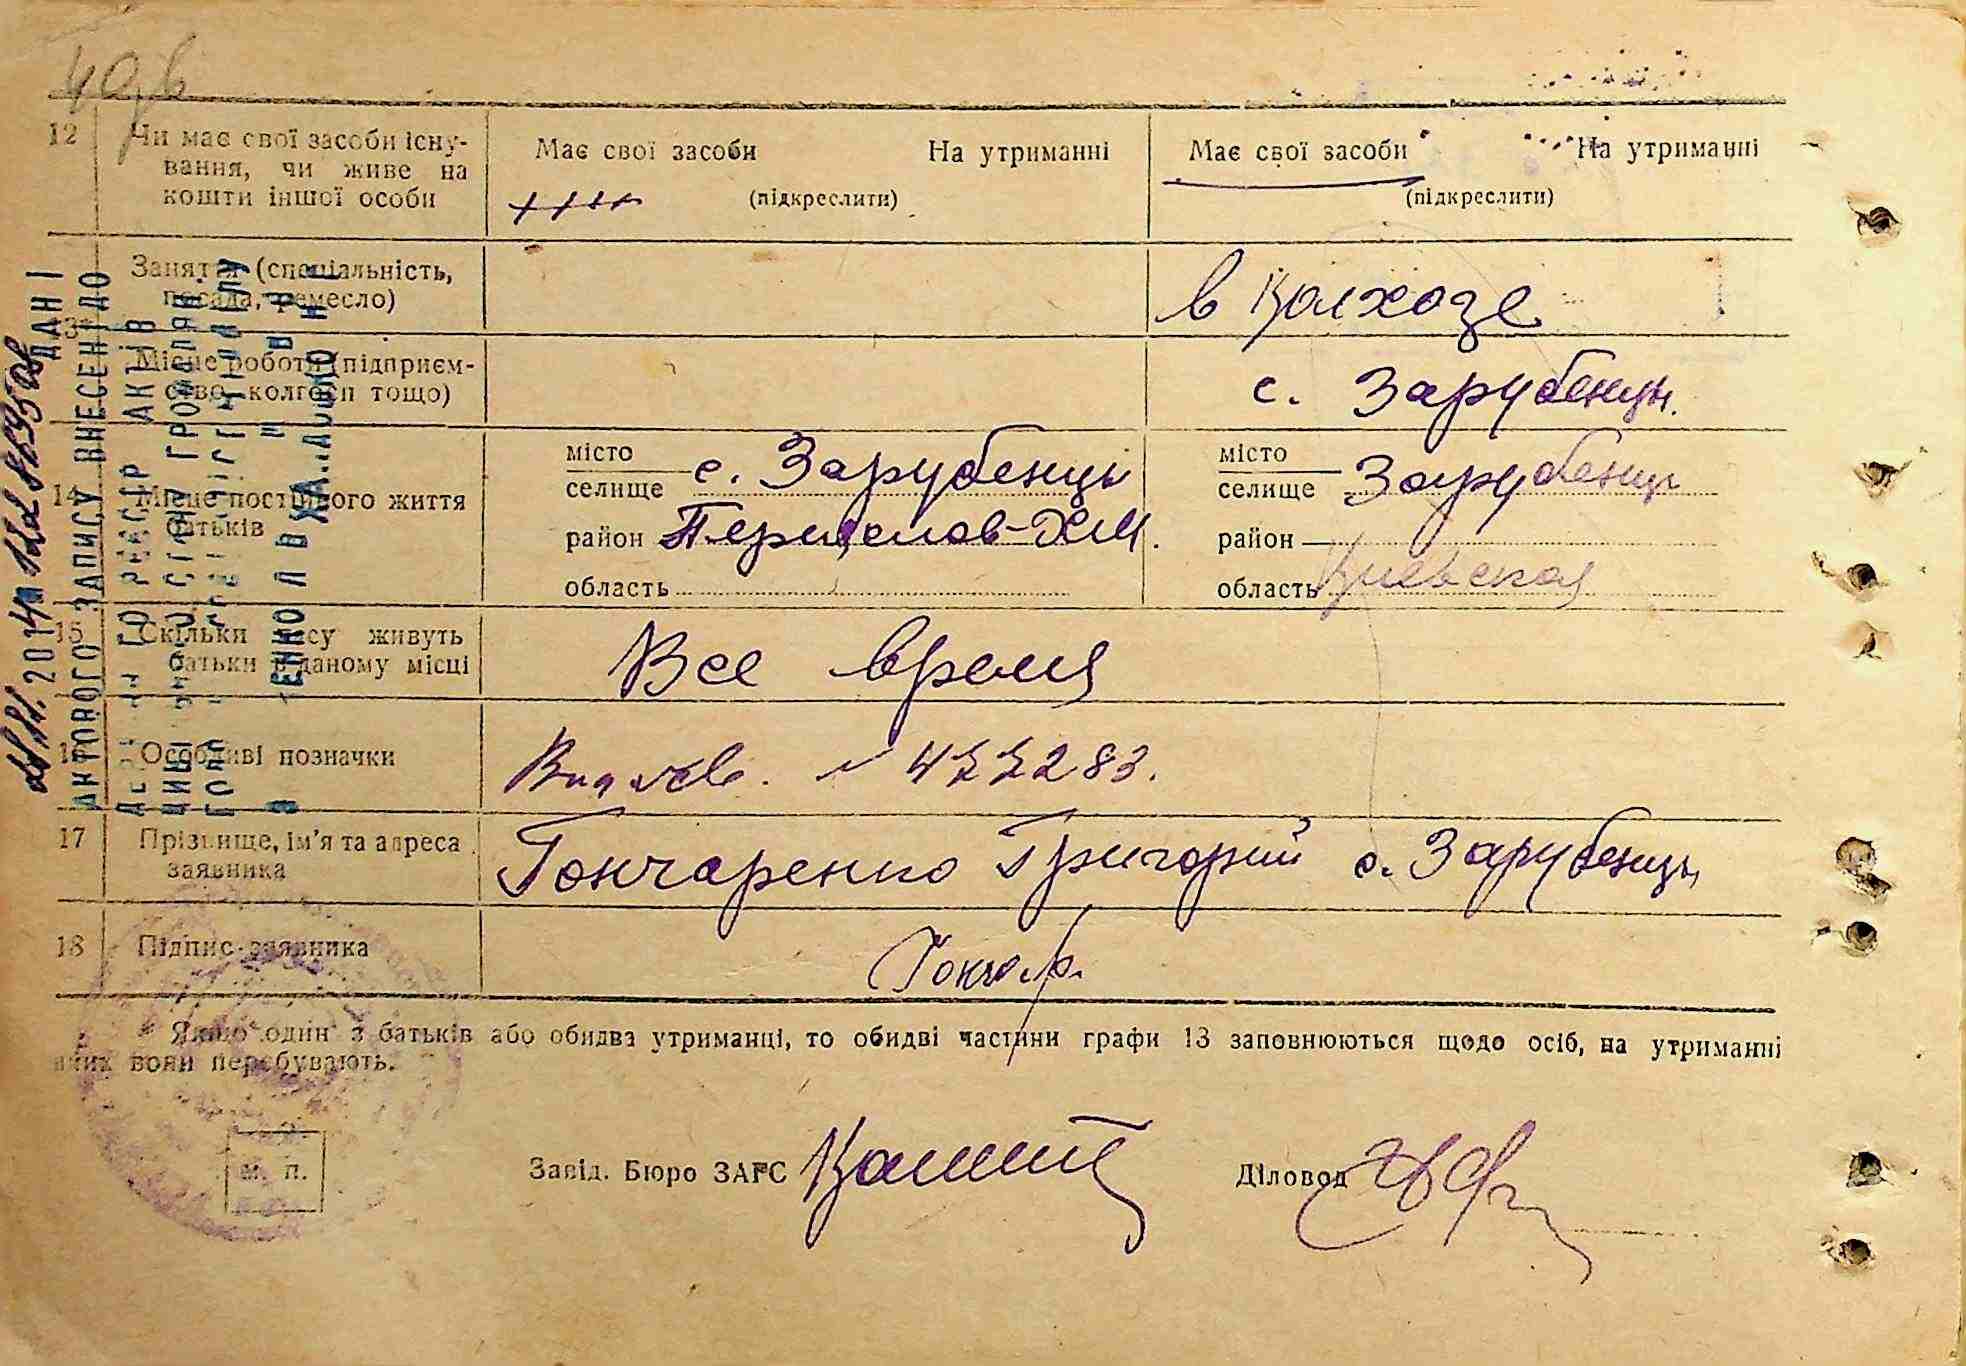 12 Чи має свої засоби існу-
вання, чи живе на
кошти іншої особи
Має свої засоби На утриманні
(підкреслити)
Має свої засоби На утриманні
(підкреслити)
Заняття (спеціальність,
посада, ремесло)
в Колхозе
Місце роботи (підприєм-
ство, колгосп тощо)
с. Зарубенцы.
14 Місце постійного життя
батьків
місто
селище с. Зарубенцы
район Переяслов-ХМ.
область
місто
селище Зарубенцы
район
область Киевская
15 Скільки часу живуть
батьки в даному місці
Все время
16 Особливі позначки
17 Прізвище, ім'я та адреса
заявника
Гончаренко Григорий с. Зарубенцы
18 Підпис заявника
Якщо один з батьків або обидва утриманці, то обидві частини графи 13 заповнюються щодо осіб, на утриманні
яких вони перебувають.
м. п.
Завід. Бюро ЗАГС
Діловод
ДАНІ
АКТОВОГО ЗАПИСУ ВНЕСЕНІ ДО